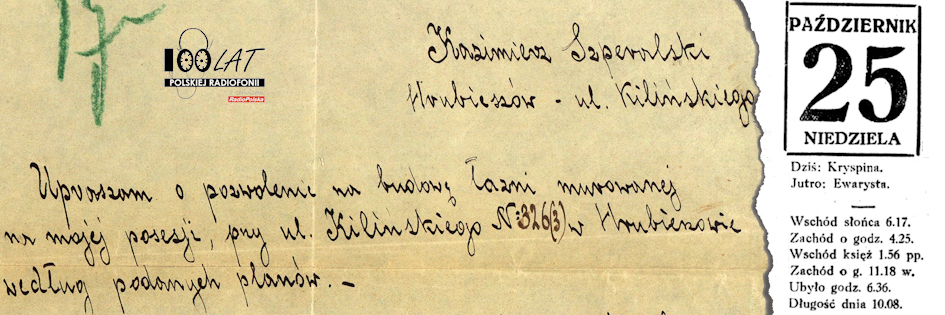 100 LAT
POLSKIEJ RADIOFONII
RadioPolska
Kazimierz Szperalski
Hrubieszów - ul. Kilińskiego
Upraszam o pozwolenie na budowę łazni murowanej
na mojej posesji, przy ul. Kilinskiego N: 326(3) w Hrubieszowie
według podanych planów. -
PAŹDZIERNIK
25
NIEDZIELA
Dziś: Kryspina.
Jutro: Ewarysta.
Wschód słońca 6.17.
Zachód o godz. 4.25.
Wschód księż 1.56 pp.
Zachód o g. 11.18 w.
Ubyło godz. 6.36.
Długość dnia 10.08.